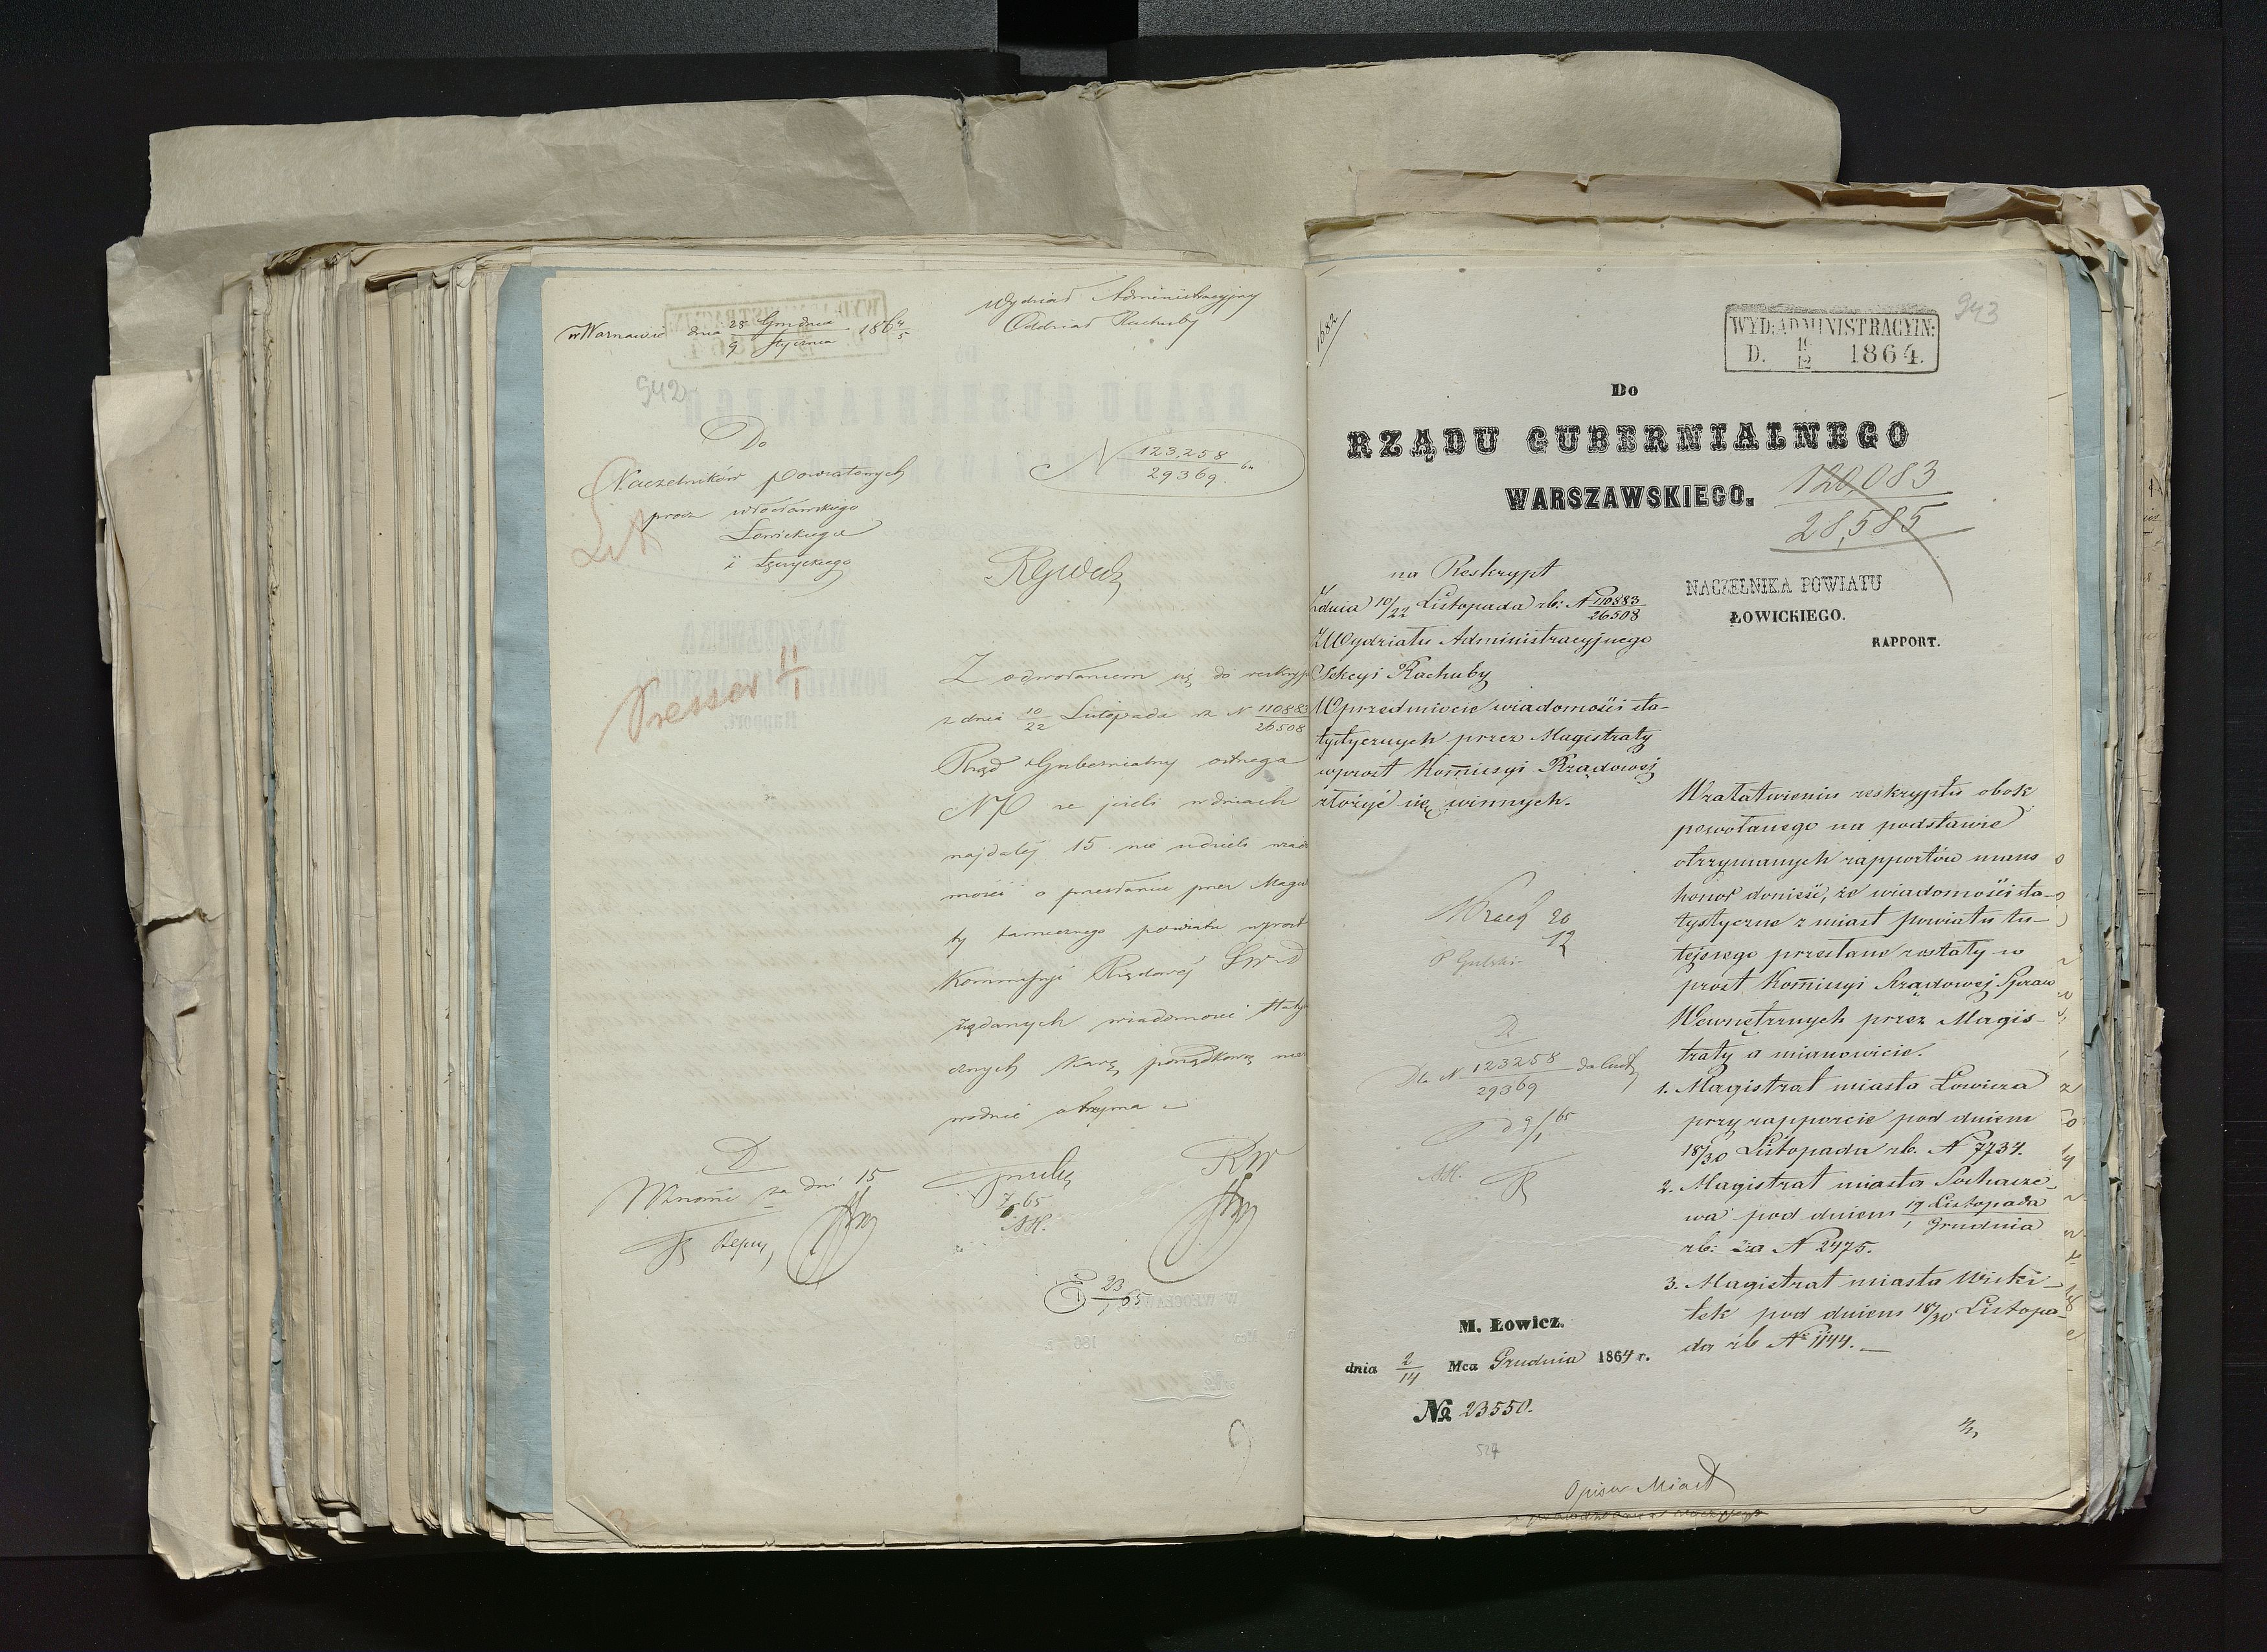 w Warszawie dnia 28 Grudnia / 9 Stycznia 1864/5
Wydział Administracyjny
Oddział Rachuby
942
Do
Naczelników powiatowych
prócz włocławskiego
Łowickiego
i Łęczyckiego
N 123,258 / 29369 64
Presser 11/1
Z odwołaniem się do reskryp
z dnia 10/22 Listopada rb N 110883 / 26508
Rząd Gubernialny ostrzega
NP że jeżeli w dniach
najdalej 15 nie udzieli wiado
mości o przesłaniu przez Magis
ty tamecznego powiatu wprost
Kommissyi Rządowej SW i D
żądanych wiadomości staty
cznych karę porządkową nie
wodnie otrzyma
D
Wznowić za dni 15
7/1 65
RW
23/1 65
1682
943
WYD: ADMINISTRACYJN:
D. 16/12 1864.
Do
RZĄDU GUBERNIALNEGO
WARSZAWSKIEGO.
120,083
28,585
na Reskrypt
z dnia 10/22 Listopada rb: N 110883 / 26508
z Wydziału Administracyjnego
Sekcyi Rachuby
W przedmiocie wiadomości sta-
tystycznych przez Magistraty
wprost Kommissyi Rządowej
złożyć się winnych.
NACZELNIKA POWIATU
ŁOWICKIEGO.
RAPPORT.
W załatwieniu reskryptu obok
powołanego na podstawie
otrzymanych rapportów mam
honor donieść, że wiadomości sta-
tystyczne z miast powiatu tu-
tejszego przesłane zostały w
prost Komissyi Rządowej Spraw
Wewnętrznych przez Magis-
traty a mianowicie.
1. Magistrat miasta Łowicza
przy rapporcie pod dniem
18/30 Listopada rb. N 7734.
2. Magistrat miasta Sochacze-
wa pod dniem 19 Listopada / 1 Grudnia
rb: za N 2475.
3. Magistrat miasta Wiski-
tek pod dniem 18/30 Listopa-
da rb N 1144.
20/12
D
Dla N 123258 / 29369
d 9/1 65
M. Łowicz.
dnia 2/14 Mca Grudnia 1864 r.
No 23550.
527
Opisów Miast